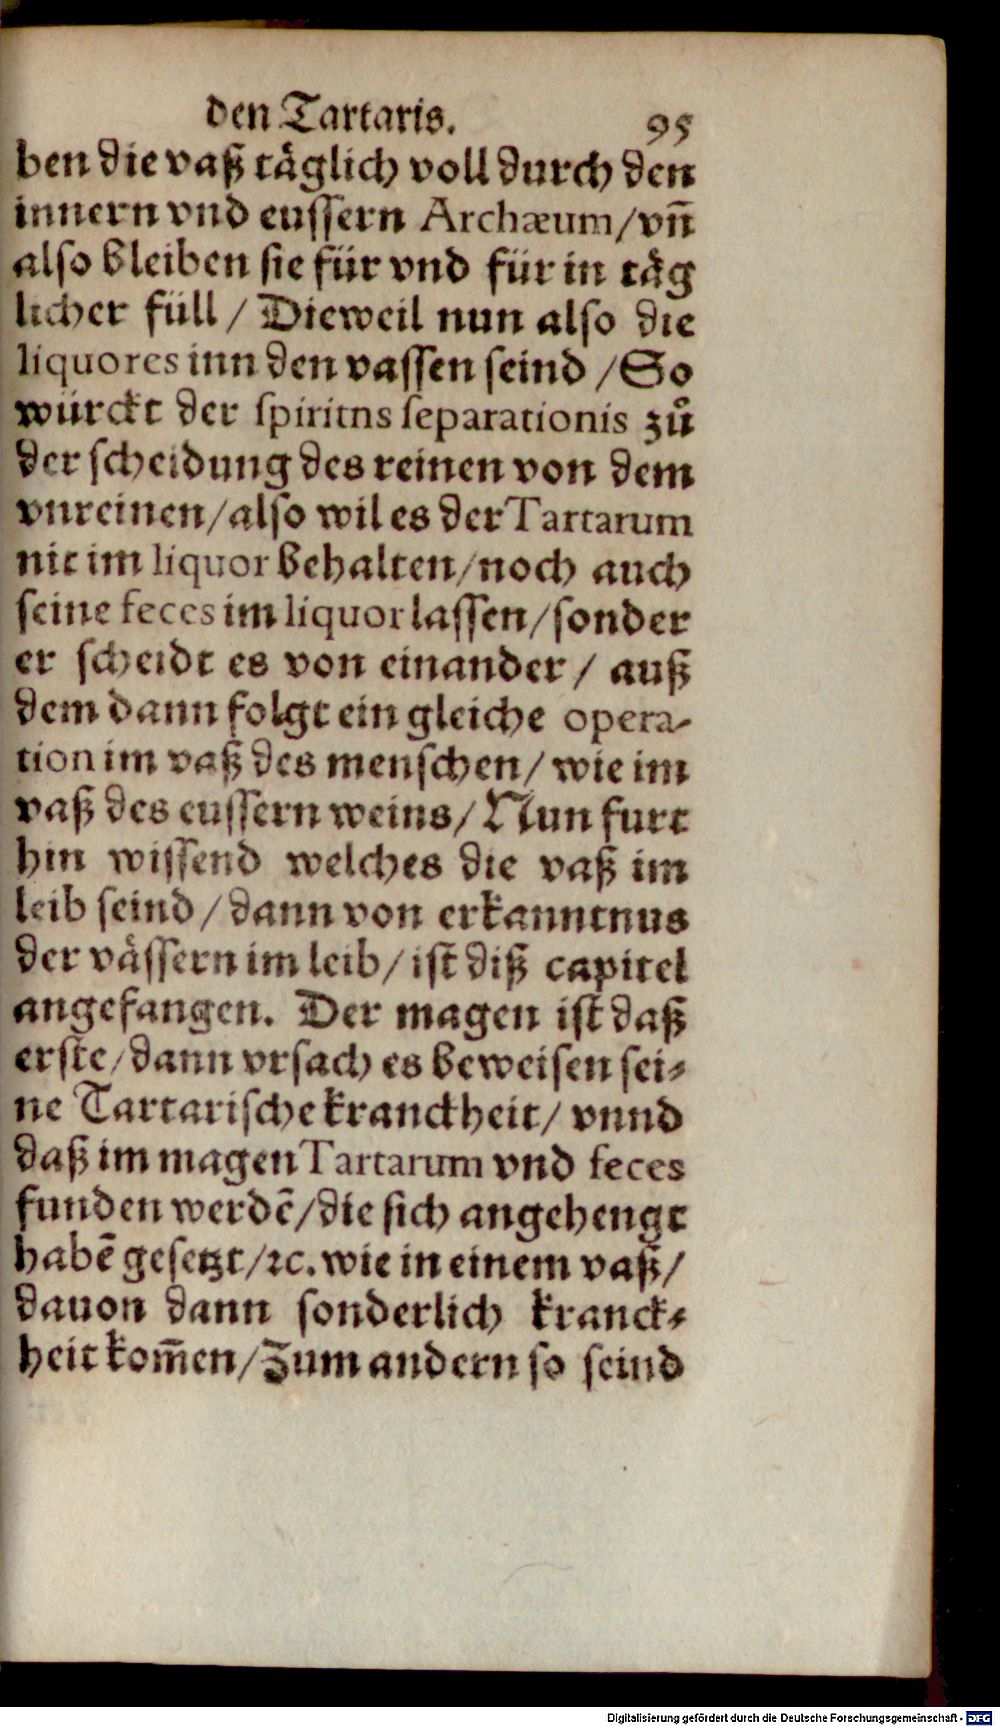 den Tartaris. 95
ben die vaß täglich voll durch den
innern vnd eussern Archæum/vn̄
also bleiben sie für vnd für in täg
licher füll / Dieweil nun also die
liquores inn den vassen seind /So
würckt der spiritns separationis zů
der scheidung des reinen von dem
vnreinen/also wil es der Tartarum
nit im liquor behalten/noch auch
seine feces im liquor lassen/sonder
er scheidt es von einander / auß
dem dann folgt ein gleiche opera-
tion im vaß des menschen/ wie im
vaß des eussern weins/ Nun furt
hin wissend welches die vaß im
leib seind /dann von erkanntnus
der vässern im leib/ ist diß capitel
angefangen. Der magen ist daß
erste/dann vrsach es beweisen sei⸗
ne Tartarische kranckheit/ vnnd
daß im magen Tartarum vnd feces
funden werdē/die sich angehengt
habē gesetzt/ꝛc. wie in einem vaß/
dauon dann sonderlich kranck⸗
heit kom̄en/Zum andern so seind
Digitalisierung gefördert durch die Deutsche Forschungsgemeinschaft - DFG